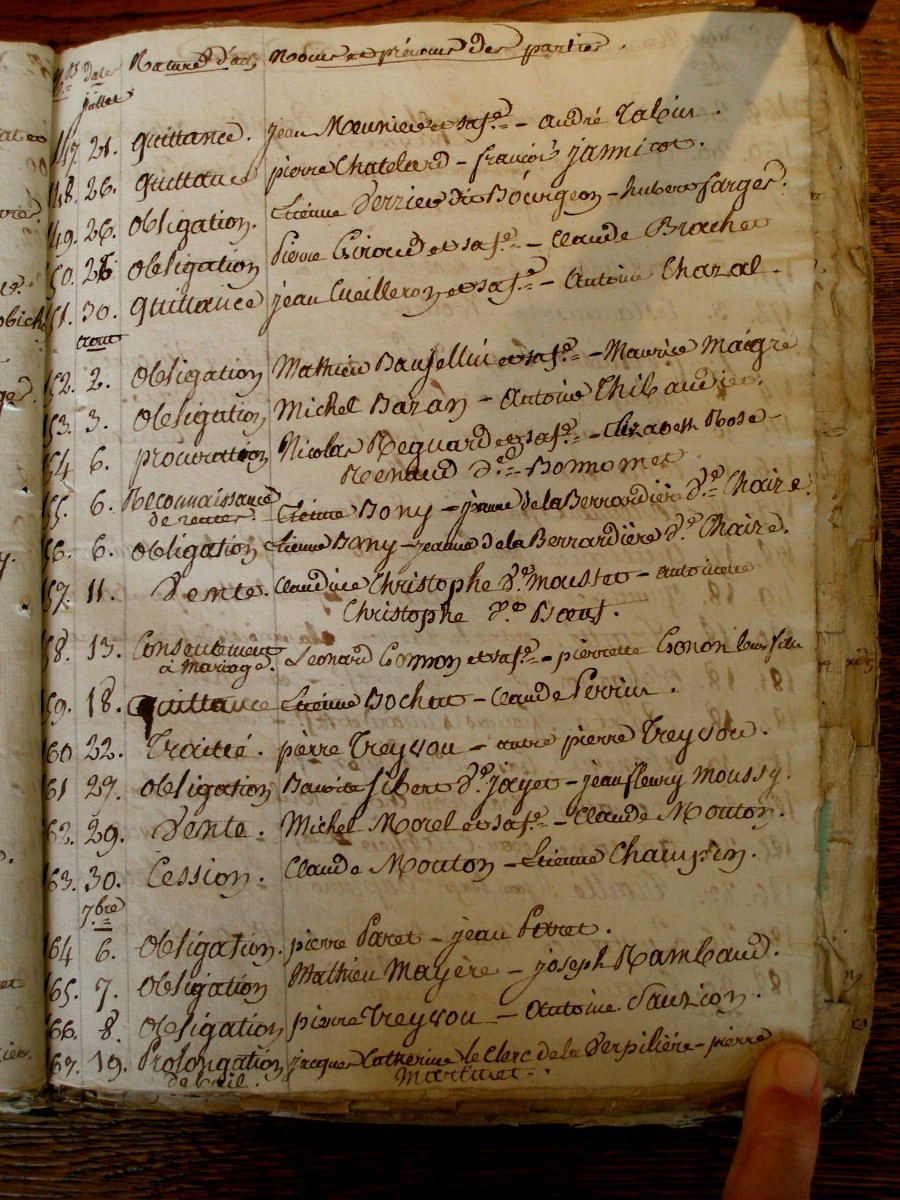 Nos dates Nature d'actes Noms et prénoms des parties.
juillet
147. 21. quittance. jean Meunier et sa fe. - andré Tabin.
148. 26. quittance pierre Chatelard - françois jannicot.
149. 26. obligation. Etienne Verrier dit Bourgeon - hubert farges.
150. 26 obligation Pierre Giroud et sa fe. - Claude Brachet
151. 30. quittance jean Cueilleron et sa fe. - Antoine Chazal.
aout
152. 2. obligation Mathieu Baujellin et sa fe. - Maurice Maigre
153. 3. obligation Michel Bazan - Antoine Thibaudier.
154 6. procuration Nicolas Reguard et sa fe. - Elizabeth Rose
Renaud de. Bonnomet
155. 6. Reconnaissance Etienne Bony - jeanne de la Berrardière de. Chaize.
de rentes.
156. 6. obligation Etienne Bony - jeanne de la Berrardière de. Chaize.
157. 11. Vente. Claudine Christophe de. Mousset - antoinette
Christophe de. Boeuf.
158. 13. Consentement Leonard Gonon et sa fe. - pierrette Gonon leur fille
à mariage.
159. 18. quittance Etienne Bochut - Claude Perrin.
160 22. Traité. pierre Treyvou - autre pierre Treyvou.
161 27. obligation Benoite Sibert de. jayet - jean fleury Moussy.
162. 29. Vente. Michel Morel et sa fe. - Claude Mouton.
163. 30. Cession. Claude Mouton - Etienne Chaussin.
7.bre
164 6. obligation. pierre Paret - jean Paret.
165. 7. obligation Mathieu Mayère - joseph Rambaud.
166. 8. obligation pierre Treyvou - Antoine Sauzion.
167. 19. Prolongation jacques Catherine le Clerc de la Verpilière - pierre
de bail. Martinet.